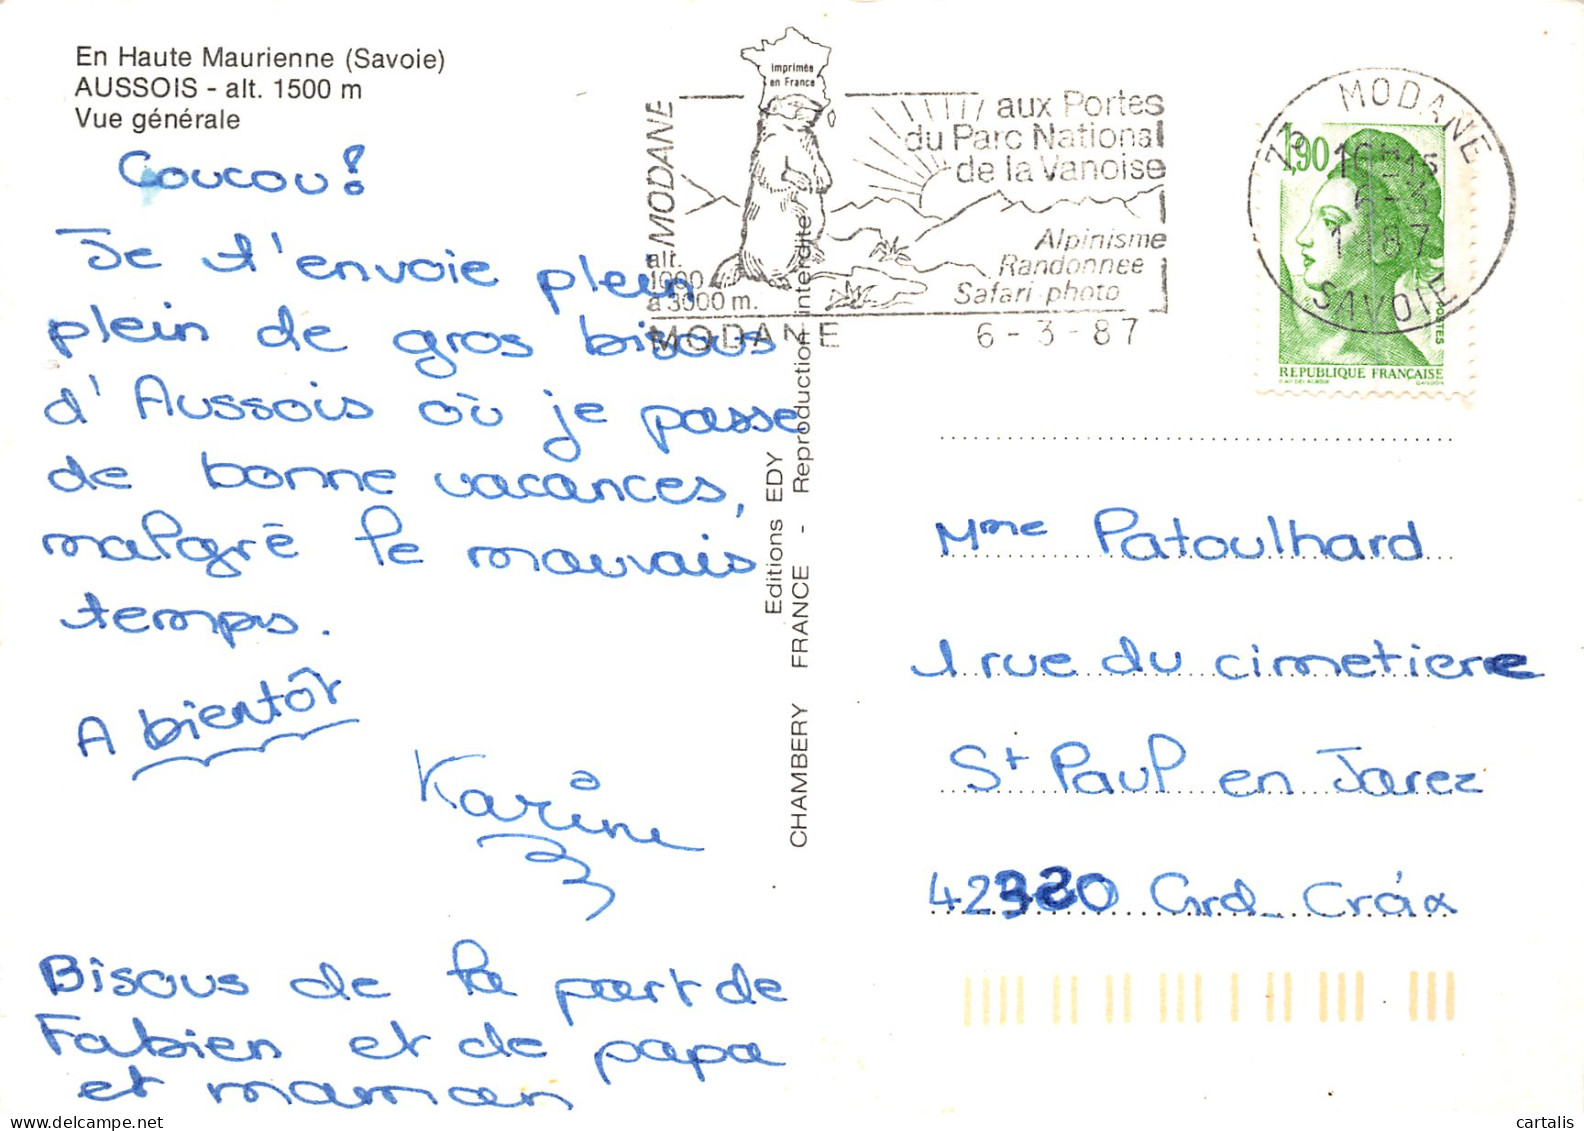 En Haute Maurienne (Savoie)
AUSSOIS - alt. 1500 m
Vue générale
Coucou !
Je t'envoie plein
plein de gros bisous
d'Aussois où je passe
de bonne vacances,
malgré le mauvais
temps.
A bientôt
Karine
Bisous de la part de
Fabien et de papa
et maman
imprimée
en France
MODANE
alt.
1000
à 3000 m.
aux Portes
du Parc National
de la Vanoise
Alpinisme
Randonnee
Safari-photo
MODANE
6-3-87
Editions EDY
CHAMBERY FRANCE - Reproduction interdite
MODANE
73
16H15
6-3
1987
SAVOIE
1,90
POSTES
REPUBLIQUE FRANÇAISE
Mme Patoulhard
1 rue du cimetiere
St Paul en Jarez
42320 Grd_Croix
cartalis